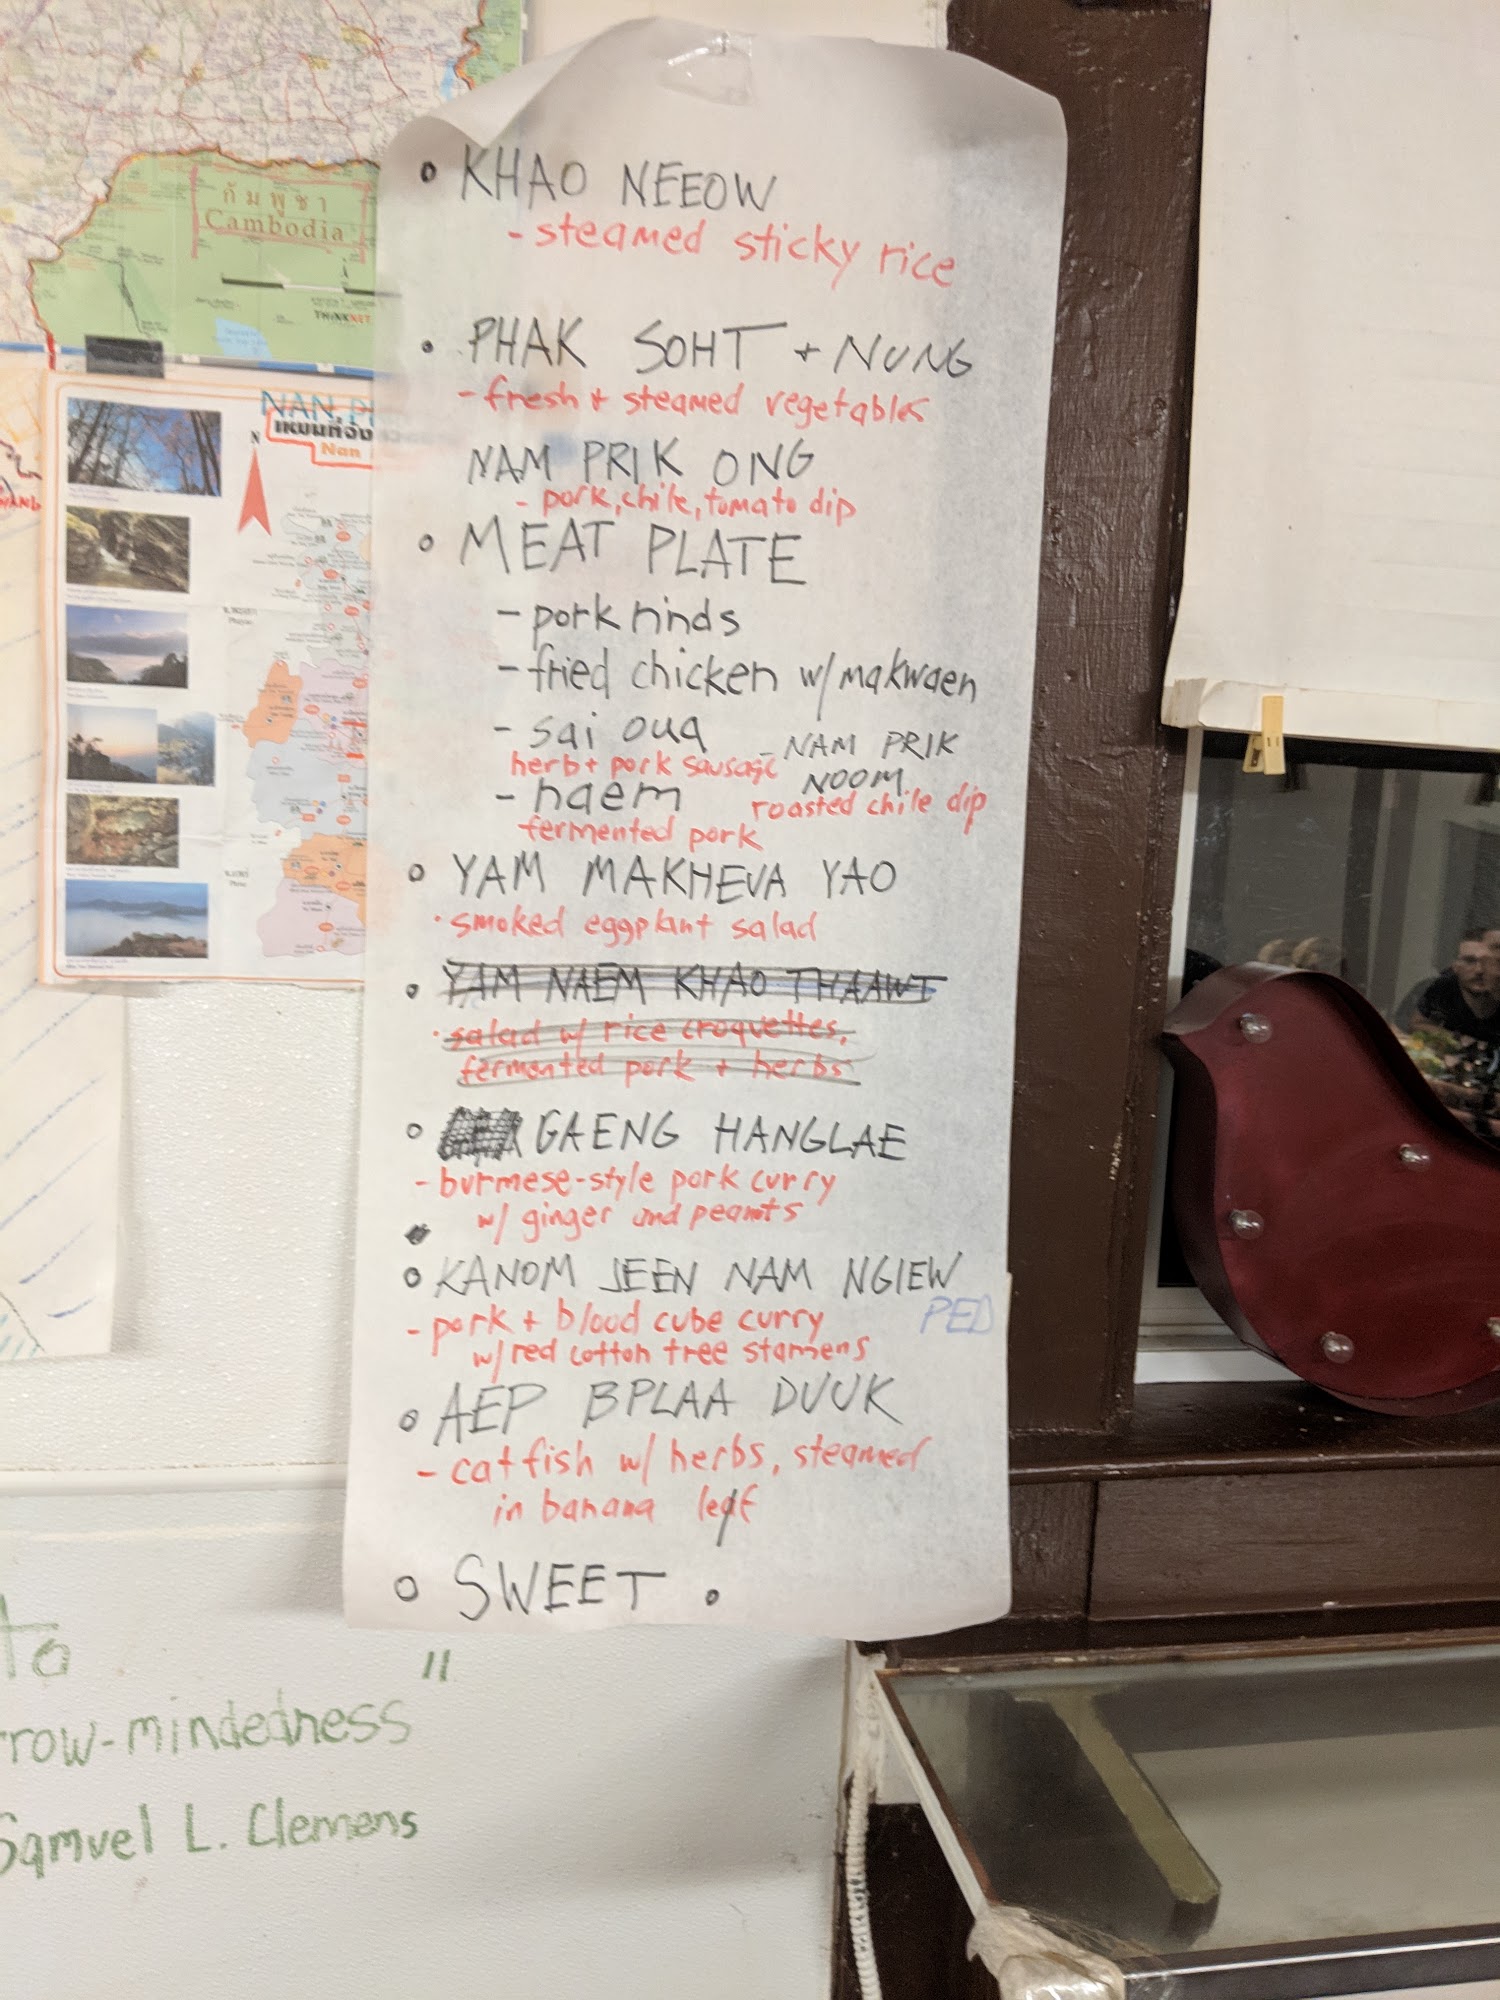 กัมพูชา
Cambodia
THiNKNET
NAN, P
แผนที่จัง
Nan
N
• KHAO NEEOW
- steamed sticky rice
• PHAK SOHT + NUNG
- fresh + steamed vegetables
NAM PRIK ONG
- pork, chile, tomato dip
• MEAT PLATE
- pork rinds
- fried chicken w/ makwaen
- sai oua
herb + pork sausage
- NAM PRIK
NOOM
roasted chile dip
- naem
fermented pork
• YAM MAKHEUA YAO
• smoked eggplant salad
• YAM NAEM KHAO THAAWT
• salad w/ rice croquettes,
fermented pork + herbs
• GAENG HANGLAE
- burmese-style pork curry
w/ ginger and peanuts
• KANOM JEEN NAM NGIEW
PED
- pork + blood cube curry
w/ red cotton tree stamens
• AEP BPLAA DUUK
- catfish w/ herbs, steamed
in banana leaf
• SWEET •
to
rrow-mindedness"
Samuel L. Clemens